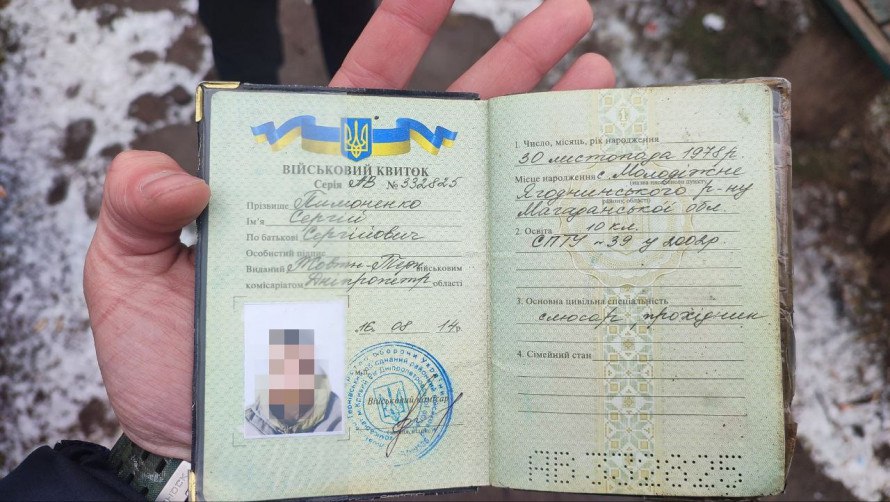 ВІЙСЬКОВИЙ КВИТОК
Серія АВ № 332825
Прізвище Лимоненко
Ім'я Сергій
По батькові Сергійович
Особистий підпис
Виданий Жовтн-Терн військовим
комісаріатом Дніпропетр області
16 08 14р.
М.П.
Військовий комісар
1. Число, місяць, рік народження
30 листопада 1978р.
Місце народження с. Молодіжне
Ягоднинського р-ну
район, область
Магаданської обл.
2. Освіта 10 кл.
СПТУ-№39 у 2002р.
3. Основна цивільна спеціальність
слюсар, прохідник
4. Сімейний стан
АВ 332825